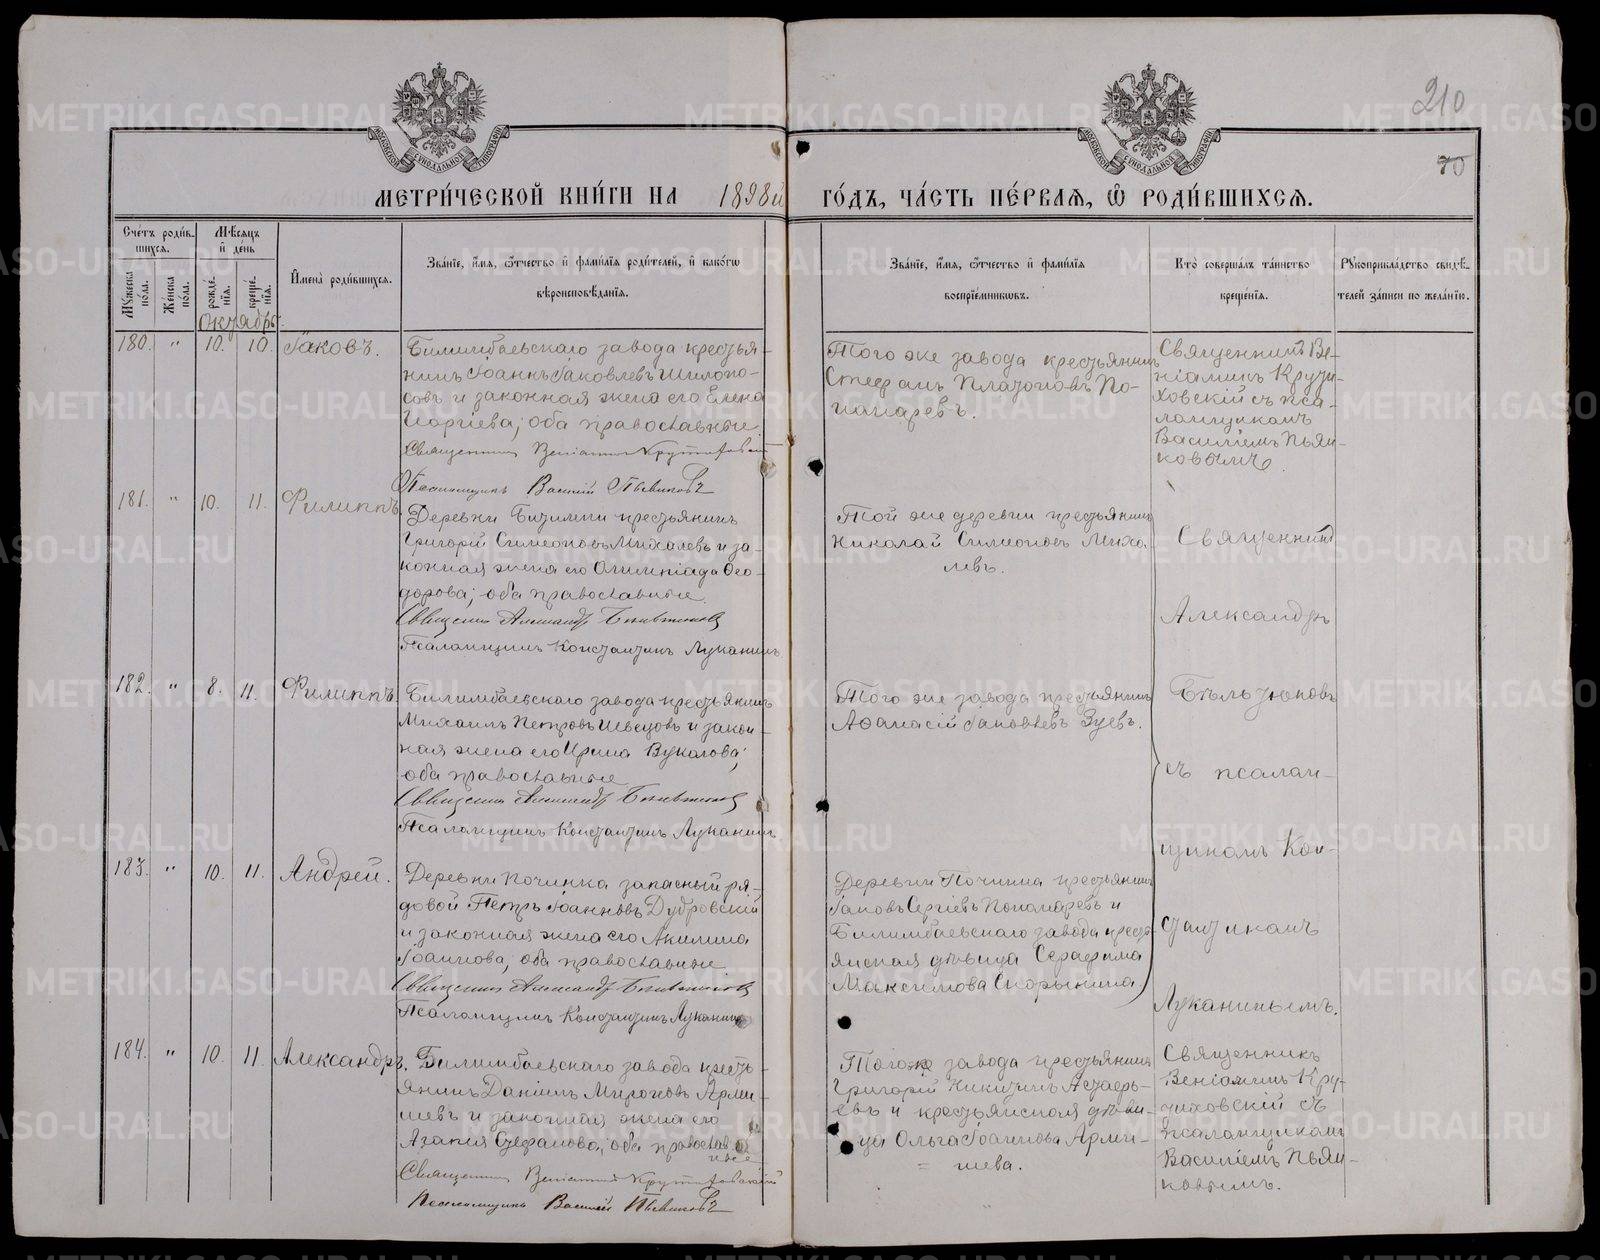 210
70
МОСКОВСКОЙ СѴНОДАЛЬНОЙ ТИПОГРАФІИ
МОСКОВСКОЙ СѴНОДАЛЬНОЙ ТИПОГРАФІИ
МЕТРИ́ЧЕСКОЙ КНИ́ГИ НА 1898й ГО́ДЪ, ЧА́СТЬ ПЕ́РВАЯ, Ѽ РОДИ́ВШИХСЯ.
Сче́тъ роди́в-
шихся.
Мꙋжеска по́ла.
Же́нска по́ла.
Мѣ́сяцъ
и҆ де́нь
рожде́-
нїя.
креще́-
нїя.
Октябрь.
И҆мена̀ роди́вшихся.
Зва́нїе, и҆́мя, ѻ҆́тчество и҆ фами́лїя роди́телей, и҆ како́гѡ
вѣроисповѣ́данїя.
Зва́нїе, и҆́мя, ѻ҆́тчество и҆ фами́лїя
воспрїе́мникѡвъ.
Кто̀ соверша́лъ та́инство
креще́нїя.
Рꙋкоприкла́дство свидѣ́-
телей за́писи по жела́нїю.
180. " 10. 10. Іаковъ.
Билимбаевскаго завода крестья-
нинъ Іоаннъ Іаковлевъ Шилоно-
совъ и законная жена его Елена
Георгіева; оба православные.
Священникъ Веніаминъ Крутиховскій
Псаломщикъ Василій Пьянковъ
Того же завода крестьянинъ
Стефанъ Платоновъ По-
номаревъ.
Священникъ Ве-
ніаминъ Крути-
ховскій съ пса-
ломщикомъ
Василіемъ Пьян-
ковымъ.
181. " 10. 11. Филиппъ.
Деревни Битимки крестьянинъ
Григорій Симеоновъ Михалевъ и за-
конная жена его Олимпіада Ѳео-
дорова; оба православные.
Священникъ Александръ
Псаломщикъ Константинъ Луканинъ
Той же деревни крестьянинъ
Николай Симеоновъ Миха-
левъ.
182. " 8. 11. Филиппъ.
Билимбаевскаго завода крестьянинъ
Михаилъ Петровъ Шевцовъ и закон-
ная жена его Ирина Вуколова;
оба православные
Священникъ Александръ
Псаломщикъ Константинъ Луканинъ
Того же завода крестьянинъ
Аѳанасій Іаковлевъ Зуевъ.
183. " 10. 11. Андрей.
Деревни Починка запасный ря-
довой Петръ Іоанновъ Дубровскій
и законная жена его Акилина
Іоаннова; оба православные
Священникъ Александръ
Псаломщикъ Константинъ Луканинъ
Деревни Починка крестьянинъ
Іаковъ Сергіевъ Пономаревъ и
Билимбаевскаго завода кресть-
янская дѣвица Серафима
Максимова Скорынина
Священникъ
Александръ
съ псалом-
щикомъ Кон-
стантиномъ
Луканинымъ.
184. " 10. 11. Александръ.
Билимбаевскаго завода кресть-
янинъ Даніилъ Мироновъ Арми-
шевъ и законная жена его
Агапія Стефанова; оба православ-
ные
Священникъ Веніаминъ Крутиховскій
Псаломщикъ Василій Пьянковъ
Того же завода крестьянинъ
Григорій Никитинъ Астафь-
евъ и крестьянская дѣви-
ца Ольга Іоаннова Арми-
шева.
Священникъ
Веніаминъ Кру-
тиховскій съ
псаломщикомъ
Василіемъ Пьян-
ковымъ.
METRIKI.GASO-URAL.RU